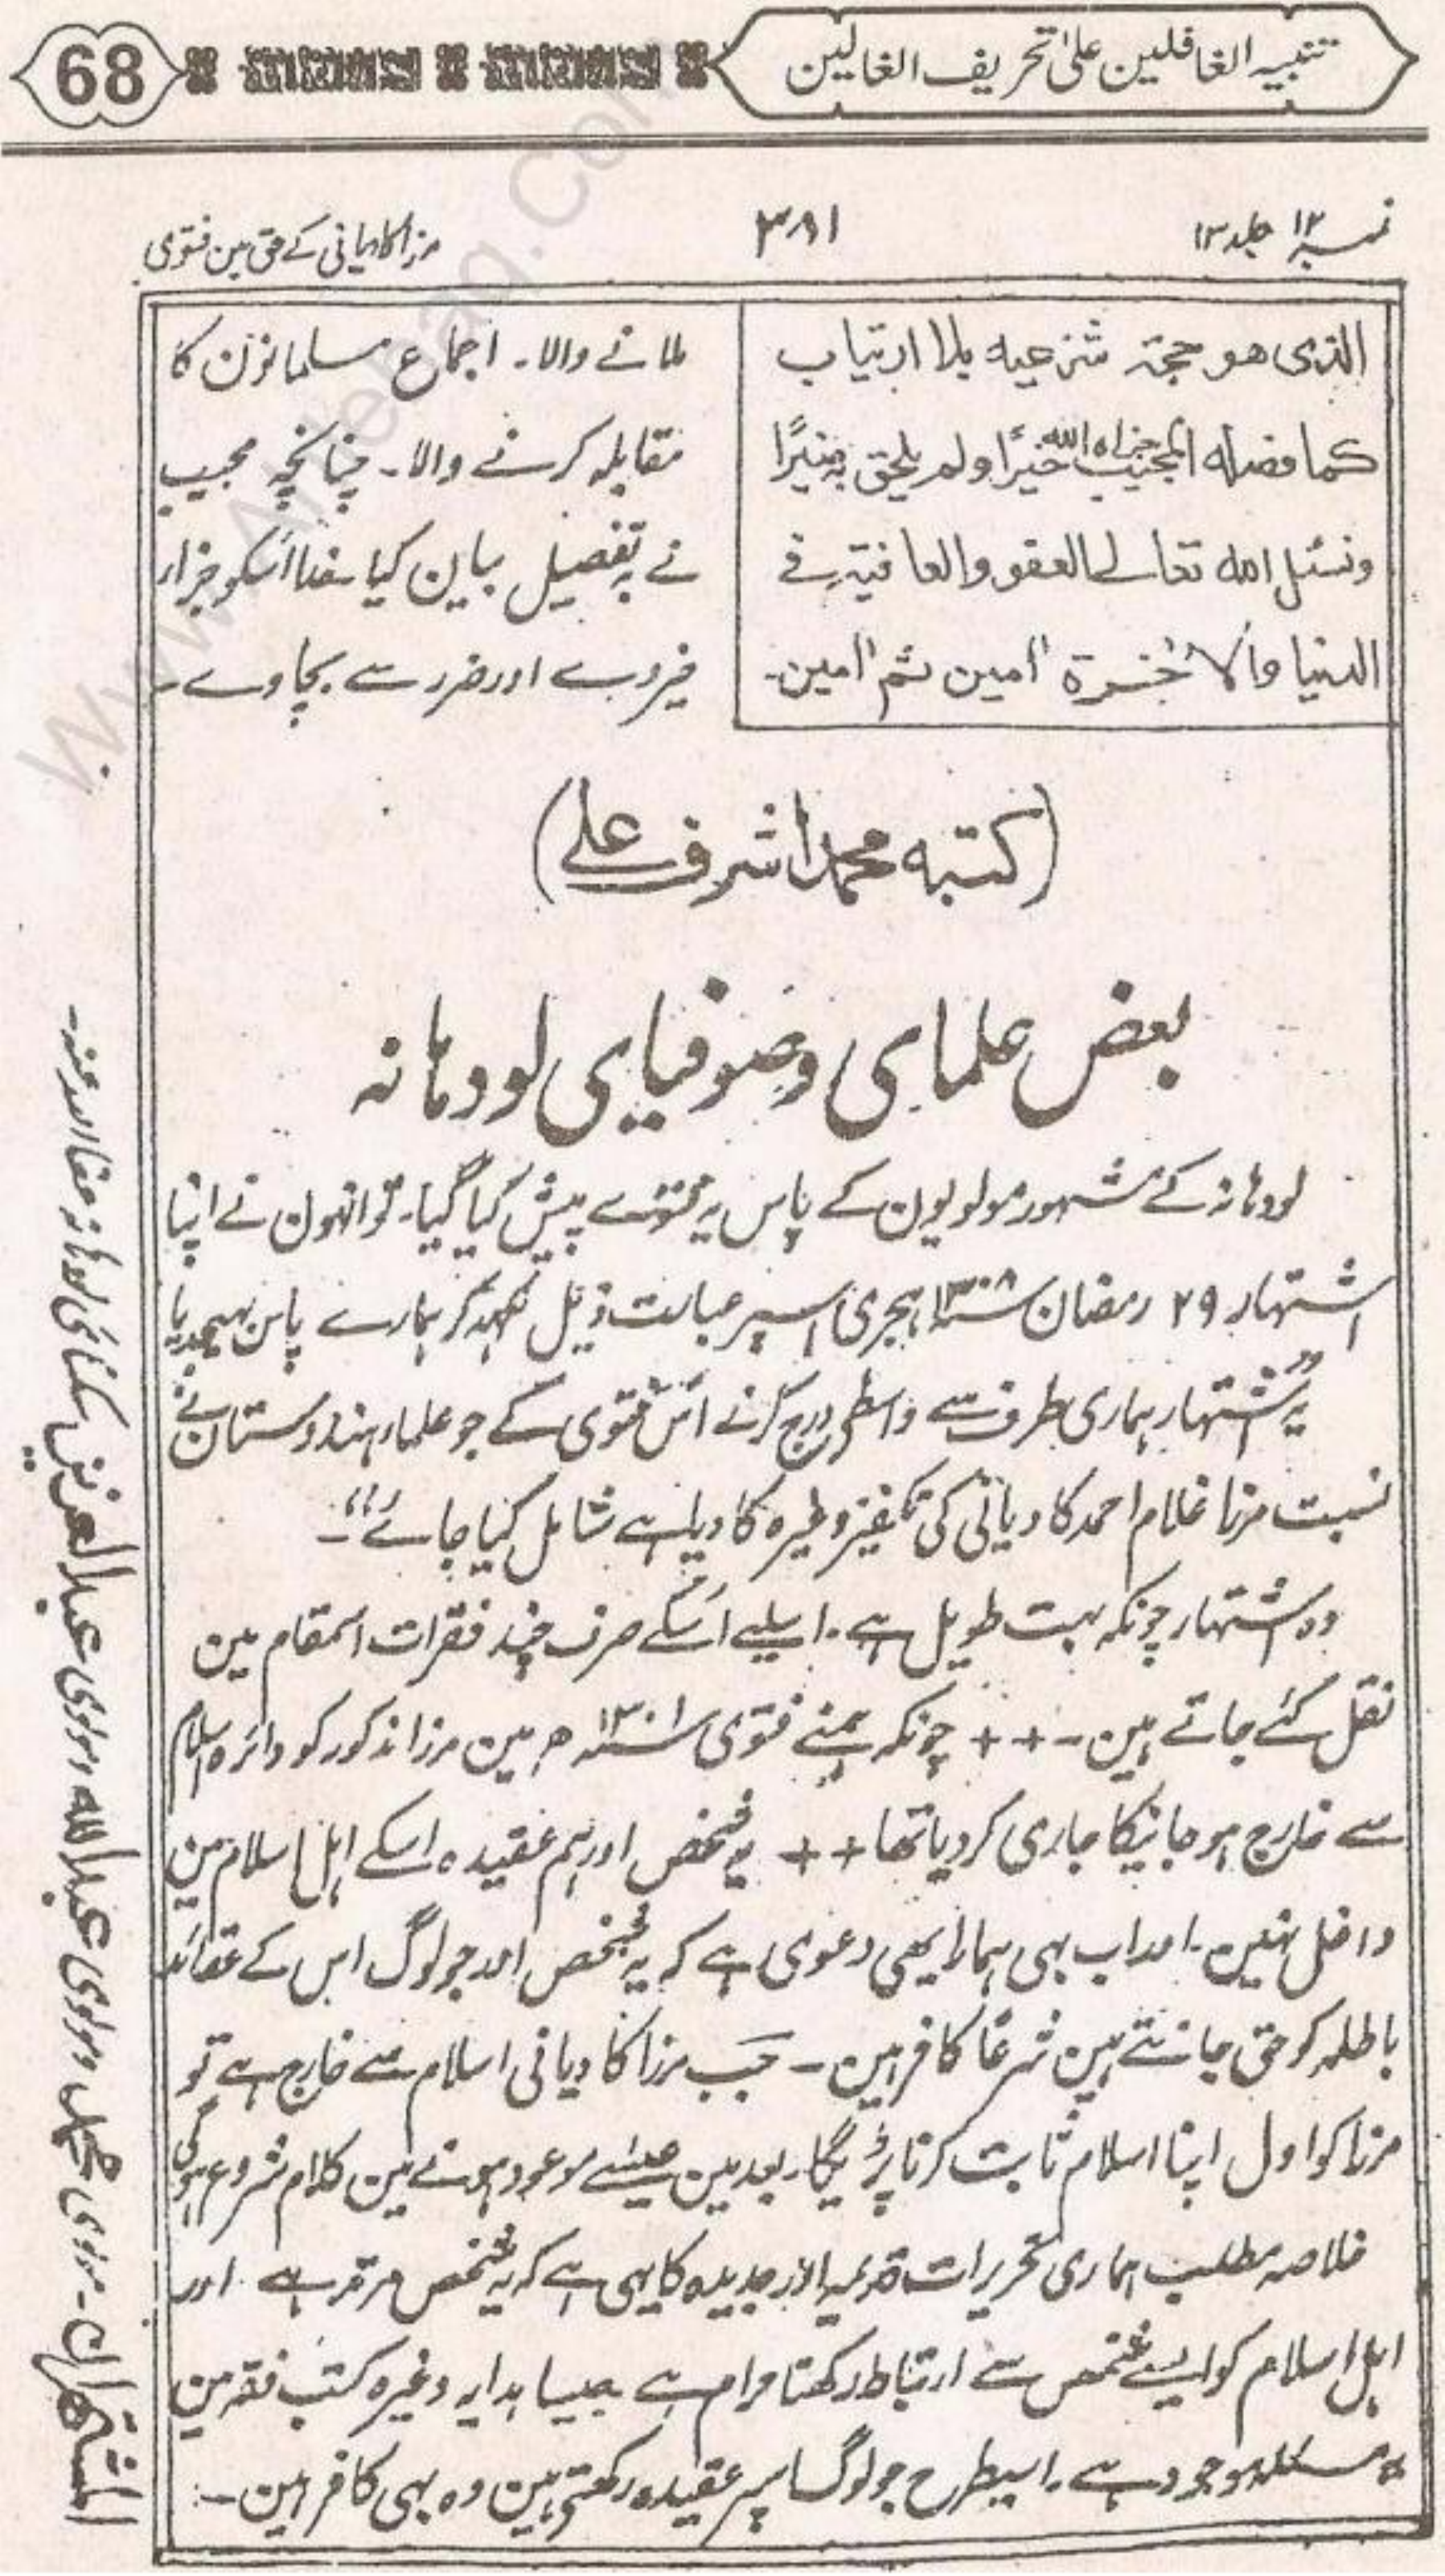 تنبیہ الغافلین علیٰ تحریف الغالین
68
نمبر ۱۲ جلد ۱۳
۳۸۱
مرزا کادیانی کے حق مین فتوی
الذی هو حجة شرعیه بلا ارتیاب
کما فصله المجیب جزاه الله خیرًا ولم یلحق به ضیرًا
ونسئل الله تعالے العفو والعافیة فے
الدنیا والاٰخرة اٰمین ثم اٰمین۔
ملانے والا۔ اجماع مسلمانون کا
مقابلہ کرنے والا۔ چنانچہ مجیب
نے بہ تفصیل بیان کیا خدا اُسکو جزاء
خیر دے اور ضرر سے بچاوے۔
(کتبه محمد اشرف علے)
بعض علمای وصوفیای لودہانہ
لودہانہ کے مشہور مولویون کے پاس یہ فتوے پیش کیا گیا۔ تو انہون نے اپنا
اشتہار ۲۹ رمضان ۱۳۰۸ہجری اسپر عبارت ذیل لکھہ کر ہمارے پاس بھیجدیا
"یہ اشتہار ہماری طرف سے واسطے درج کرنے اُس فتوی کے جو علماء ہندوستان نے
نسبت مرزا غلام احمد کادیانی کی تکفیر وغیرہ کا دیا ہے شامل کیا جائے"۔
وہ اشتہار چونکہ بہت طویل ہے۔ اسلیے اُسکے صرف چند فقرات اسمقام مین
نقل کئے جاتے ہین۔ ++ چونکہ ہمنے فتوی ۱۳۰۱ھ مین مرزا مذکور کو دائرہ اسلام
سے خارج ہو جانیکا جاری کر دیا تھا ++ یہ شخص اور ہم عقیدہ اسکے اہل اسلام مین
داخل نہین۔ اور اب بہی ہمارا یہی دعوی ہے کہ یہ شخص اور جو لوگ اس کے عقائد
باطلہ کو حق جانتے ہین شرعًا کافر ہین۔ جب مرزا کادیانی اسلام سے خارج ہے تو
مرزا کو اول اپنا اسلام ثابت کرنا پڑیگا۔ بعد مین عیسٰے موعود ہونے مین کلام شروع ہوگی
خلاصہ مطلب ہماری تحریرات قدیمہ اور جدیدہ کا یہی ہے کہ یہ شخص مرتد ہے اور
اہل اسلام کو ایسے شخص سے ارتباط رکھنا حرام ہے جیسا ہدایہ وغیرہ کتب فقہ مین
یہ مسئلہ موجود ہے۔ اسیطرح جو لوگ اسپر عقیدہ رکھتے ہین وہ بہی کافر ہین۔
المشتهران۔ مولوی محمد ومولوی عبدالله ومولوی عبدالعزیز سکنائی لودہانہ عفا اللہ عنہم۔
www.AhleHaq.Com